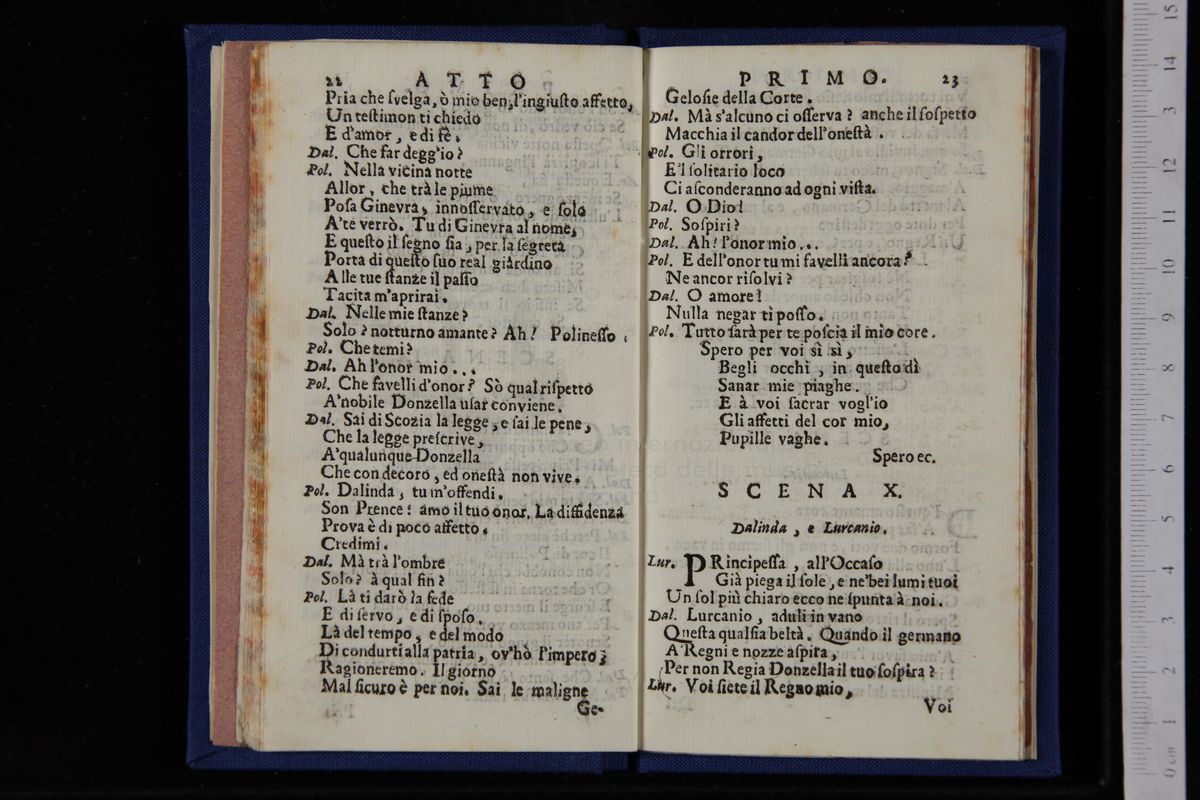 22 ATTO
Pria che ſvelga, ò mio ben, l'ingiuſto affetto,
Un teſtimon ti chiedo
E d'amor, e di fè.
Dal. Che far degg'io?
Pol. Nella vicina notte
Allor, che trà le piume
Poſa Ginevra, innoſſervato, e ſolo
A'te verrò. Tu di Ginevra al nome,
E queſto il ſegno ſia, per la ſegreta
Porta di queſto ſuo real giardino
Alle tue ſtanze il paſſo
Tacita m'aprirai.
Dal. Nelle mie ſtanze?
Solo? notturno amante? Ah! Polineſſo.
Pol. Che temi?
Dal. Ah l'onor mio...
Pol. Che favelli d'onor? Sò qual riſpetto
A'nobile Donzella uſar conviene.
Dal. Sai di Scozia la legge, e ſai le pene,
Che la legge preſcrive,
A'qualunque Donzella
Che con decoro, ed oneſtà non vive.
Pol. Dalinda, tu m'offendi.
Son Prence: amo il tuo onor. La diffidenza
Prova è di poco affetto.
Credimi.
Dal. Mà trà l'ombre
Solo? à qual fin?
Pol. Là ti darò la fede
E di ſervo, e di ſpoſo.
Là del tempo, e del modo
Di condurti alla patria, ov'hò l'impero;
Ragioneremo. Il giorno
Mal ſicuro è per noi. Sai le maligne
Ge-
PRIMO. 23
Geloſie della Corte.
Dal. Mà s'alcuno ci oſſerva? anche il ſoſpetto
Macchia il candor dell'oneſtà.
Pol. Gli orrori,
E'l ſolitario loco
Ci aſconderanno ad ogni viſta.
Dal. O Dio!
Pol. Soſpiri?
Dal. Ah! l'onor mio...
Pol. E dell'onor tu mi favelli ancora?
Ne ancor riſolvi?
Dal. O amore!
Nulla negar ti poſſo.
Pol. Tutto ſarà per te poſcia il mio core.
Spero per voi sì sì,
Begli occhi, in queſto dì
Sanar mie piaghe.
E à voi ſacrar vogl'io
Gli affetti del cor mio,
Pupille vaghe.
Spero ec.
SCENA X.
Dalinda, e Lurcanio.
Lur. PRincipeſſa, all'Occaſo
Già piega il ſole, e ne'bei lumi tuoi
Un ſol più chiaro ecco ne ſpunta à noi.
Dal. Lurcanio, aduli in vano
Queſta qualſia beltà. Quando il germano
A'Regni e nozze aſpira,
Per non Regia Donzella il tuo ſoſpira?
Lur. Voi ſiete il Regno mio,
Voi